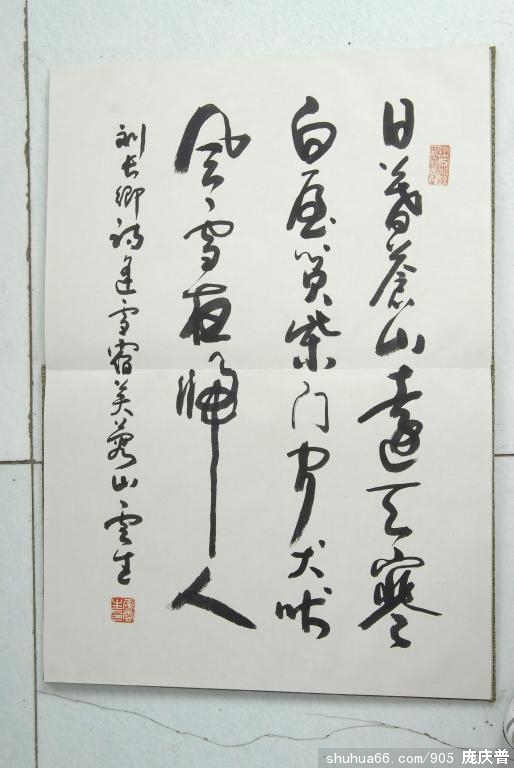 日暮蒼山遠天寒
白屋貧柴门闻犬吠
风雪夜歸人
刘长卿诗逢雪宿芙蓉山雲生
shuhua66.com/905 庞庆普